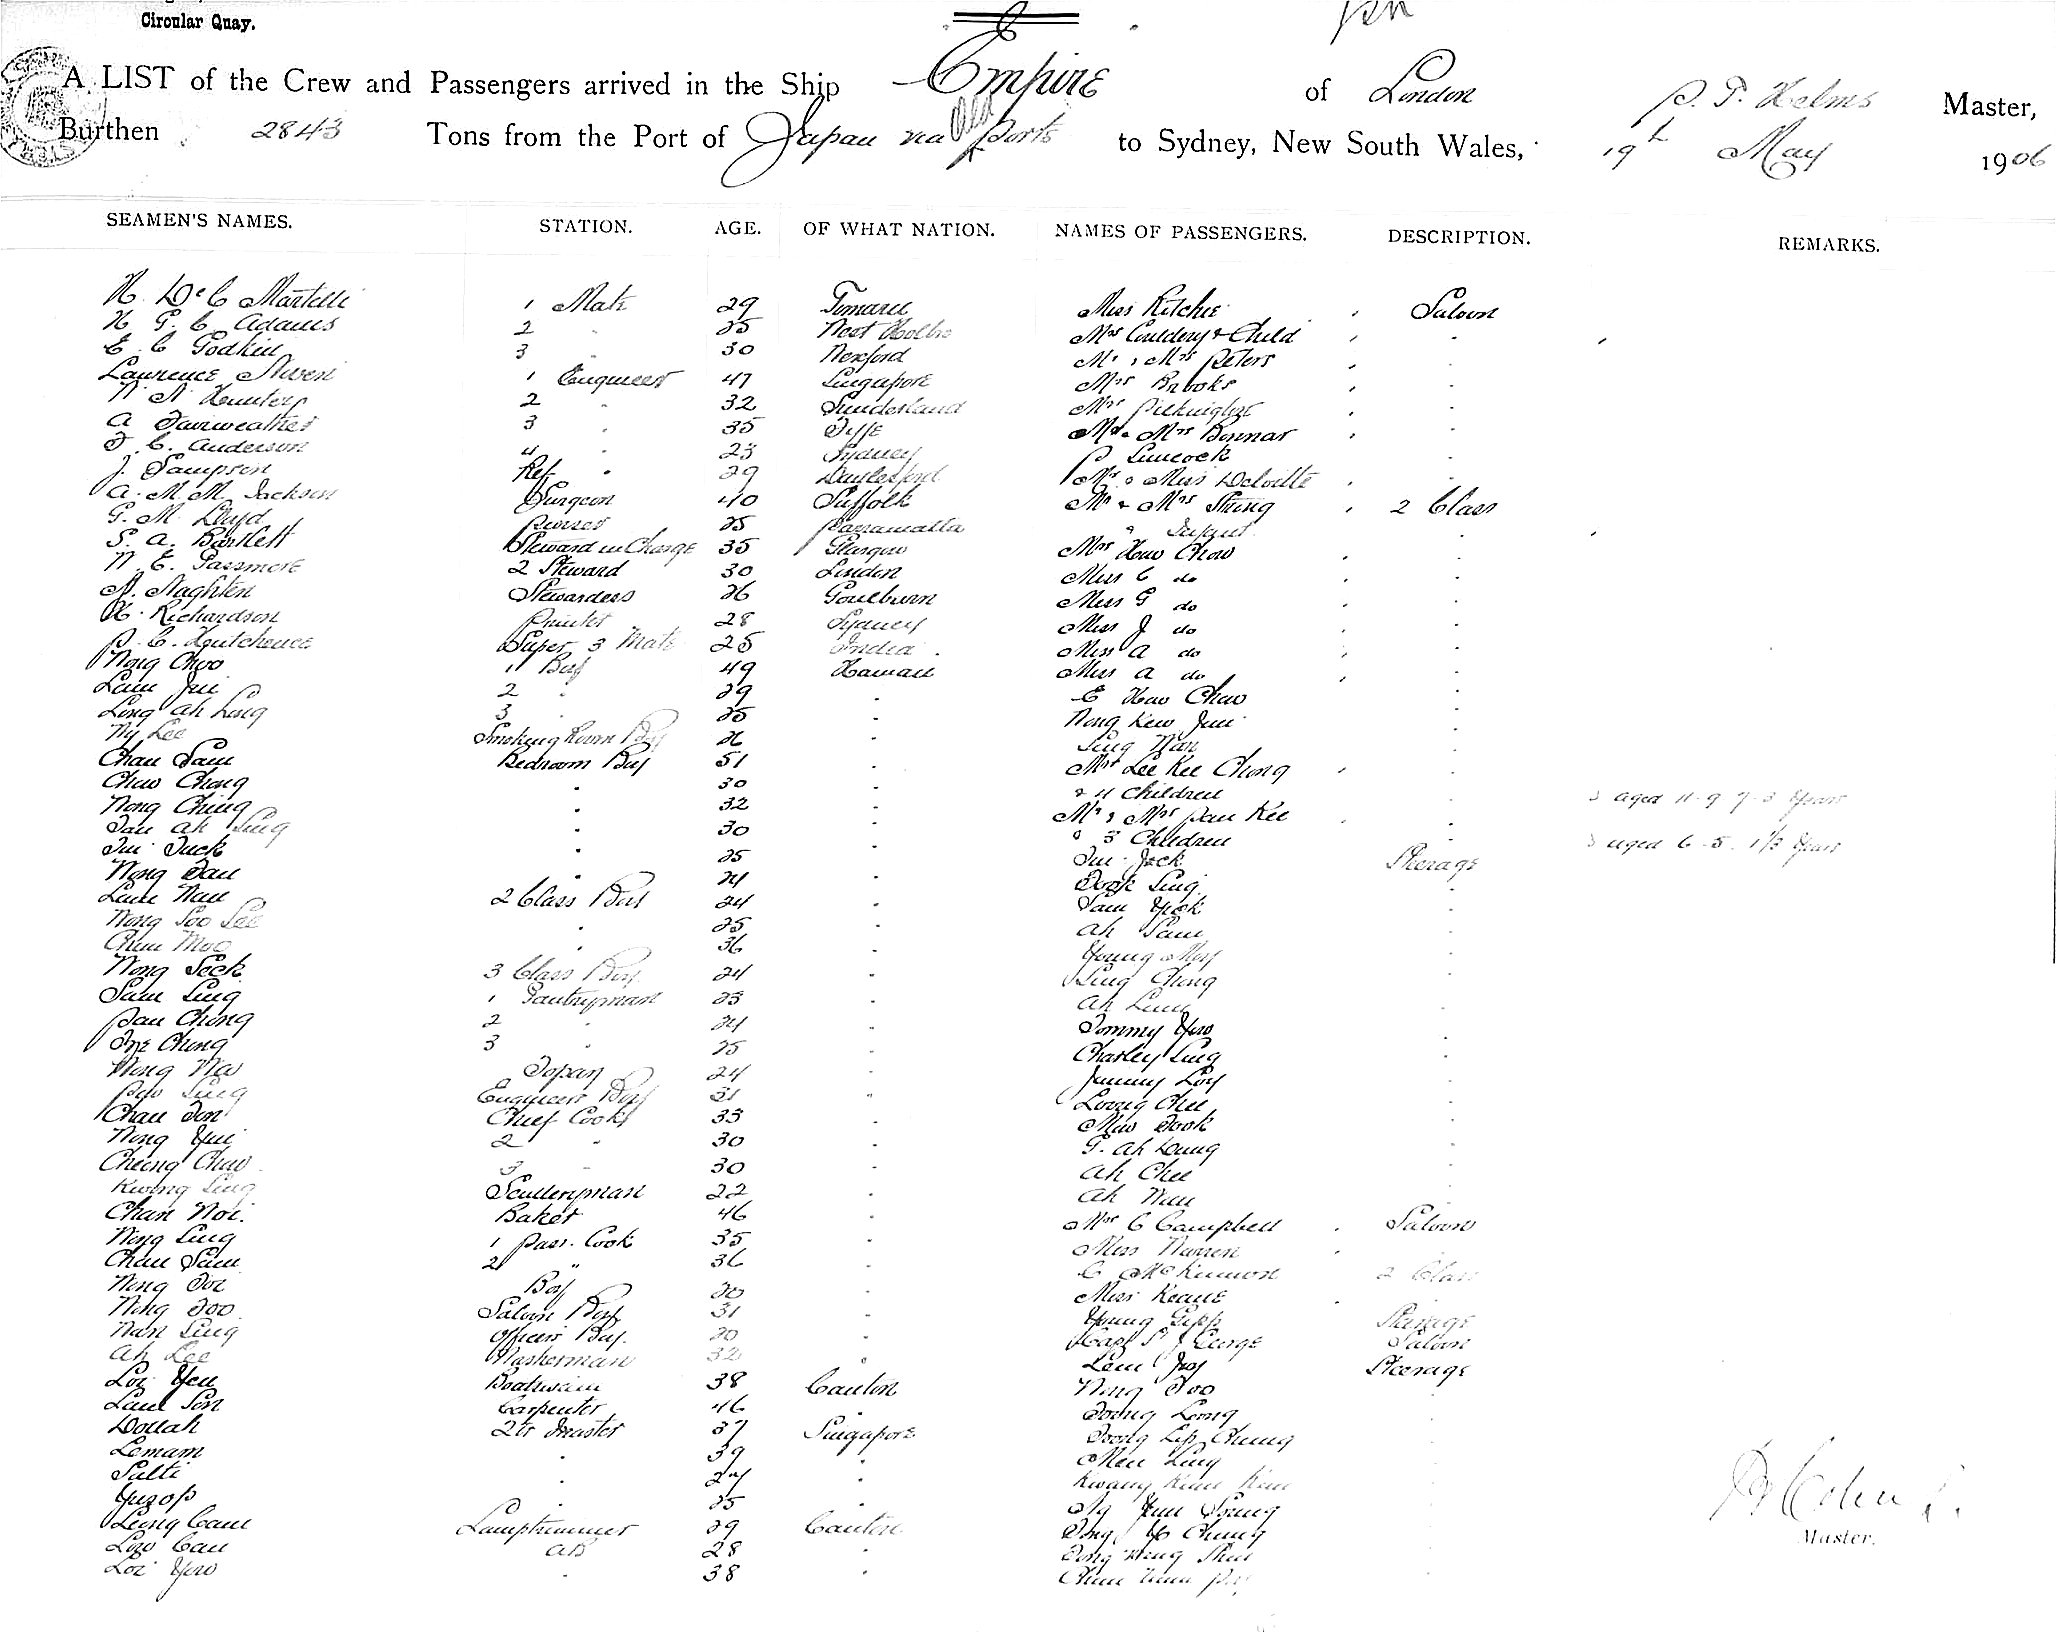 Circular Quay.
A LIST of the Crew and Passengers arrived in the Ship Empire of London P. T. Helms Master,
Burthen 2843 Tons from the Port of Japan via ports to Sydney, New South Wales, 19th May 1906
SEAMEN'S NAMES. STATION. AGE. OF WHAT NATION. NAMES OF PASSENGERS. DESCRIPTION. REMARKS.
H. De C Martelli 1 Mate 29 Timaru Miss Ritchie Saloon
H. G. C. Adams 2 " 25 Mrs Couldery & Child "
E C Godkin 3 " 30 Wexford Mr & Mrs Peters "
Laurence Niven 1 Engineer 47 Singapore Mrs Brooks "
Hunter 2 " 32 Sunderland Mrs "
A Fairweather 3 " 35 Fife Mr & Mrs Bonnar "
F. C. Anderson 4 " 23 Sydney P Luscock "
J. Sampson Ref " 29 Daylesford Mr & Miss Delville "
A. M. M. Jackson Surgeon 40 Suffolk Mr & Mrs String 2 Class
G. M. Lloyd Purser 25 Parramatta " Infant "
S. A. Bartlett Steward in Charge 35 Glasgow Mrs How Chow "
W. E. Passmore 2 Steward 30 London Miss C do "
A. Naghten Stewardess 26 Goulburn Miss G do "
H. Richardson Printer 28 Sydney Miss J do "
P. C. Hutchence Super 3 Mate 25 India Miss A do "
Wong Choo 1 Boy 49 Hainan Miss A do "
Lam Jui 2 " 29 " E How Chow "
Long Ah Long 3 " 25 " Wong Kew Jun "
Ny Lee Smoking Room Boy 26 " Sing Nan "
Chan Sam Bedroom Boy 51 " Mrs Lee Kee Chong "
Chow Chong " 30 " & 4 Children " aged 11-9 7-3 Years
Wong Ching " 32 " Mr & Mrs Pan Kee "
Tan Ah Sing " 30 " & 3 Children " aged 6-5. 1/2 Years
Jui Tuck " 25 " Jui Jack Steerage
Wong Tan " 24 " Took Sing "
Lam Nam 2 Class Boy 24 " Sam Yick "
Wong Soo Lee " 25 " Ah Sam "
Chun Moo " 36 " Young Moy "
Wong Seck 3 Class Boy 24 " Sing Chong "
Sam Ling 1 Pantryman 23 " Ah Lum "
Pan Chong 2 " 24 " Tommy Yow "
Chong 3 " 25 " Charley Ling "
Wong Wa Topan 24 " Jimmy Loy "
Sing Engineers Boy 31 " Loong Chee "
Chan Ton Chief Cook 33 " Mew Took "
Wong Yui 2 " 30 " G. Ah Dung "
Cheong Chow 3 " 30 " Ah Chee "
Kwong Sing Sculleryman 22 " Ah Nam "
Chan Noi. Baker 46 " Mrs C Campbell Saloon
Wong Ling 1 Pass. Cook 35 " Miss Warren "
Chan Sam 2 " 36 " C McKinnon 2 Class
Wong Toi Boy 20 " Miss Keane "
Wong Too Saloon Boy 31 " Young Gipp Steerage
Nan Sing Officers Boy. 20 " Capt S J George Saloon
Ah Lee Washerman 32 " Lem Joy Steerage
Loi Yeu Boatswain 38 Canton Wong Too "
Lam Son Carpenter 46 " Toung Leong "
Dollah 2tr Master 37 Singapore Toong Lip Chung "
Lemam " 39 " Men Ling "
Salti " 27 " Kwang Kum "
Yuzop " 25 " Ng Yun Soung "
Leung Cam Lamptrimmer 29 Canton Chung "
Low Cau AB 28 " Tong Wong Shu "
Loi Yow " 38 " Chun
Master.